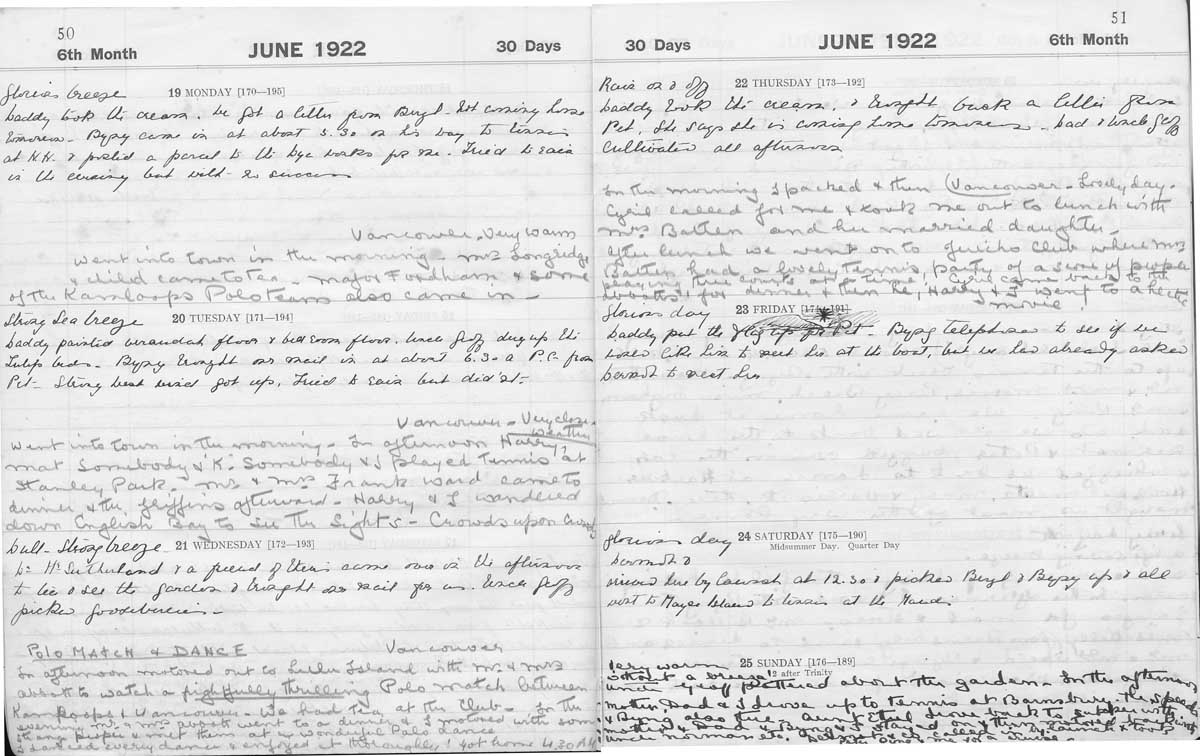 50
6th Month
JUNE 1922
30 Days
Glorious breeze
19 MONDAY [170—195]
Daddy took the cream. We got a letter from Beryl. Not coming home
tomorrow. Bypsy came in at about 3.30 on his way to tennis
at K.K. & posted a parcel to the dye works for me. Tried to sail
in the evening but wild - no success
Vancouver. Very warm
went into town in the morning. Mrs Longridge
& child came to tea. Major Fordham & some
of the Kamloops Polo team also came in -
Strong Sea breeze
20 TUESDAY [171—194]
Daddy painted verandah floor & bedroom floor. Uncle Geoff dug up the
tulip beds. Bypsy brought our mail in at about 6.30 a P.C. from
Pet. Strong west wind got up. Tried to sail but didn't.
Vancouver. Very close
weather
went into town in the morning. In afternoon Harry,
mat Somebody & 'K' Somebody & I played tennis at
Stanley Park. Mr & Mrs Frank Ward came to
dinner & the Griffins afterward. Harry & I wandered
down English Bay to see the sights - Crowds upon crowds
Dull - Strong breeze
21 WEDNESDAY [172—193]
Sutherland & a friend of theirs came over in the afternoon
to tea & see the garden & brought our mail for us. Uncle Geoff
picked gooseberries.
POLO MATCH & DANCE
Vancouver
In afternoon motored out to Lulu Island with Mr & Mrs
Abbott to watch a frightfully thrilling Polo match between
Kamloops & Vancouver. We had tea at the Club. In the
evening Mr & Mrs Abbott went to a dinner & I motored with some
other people & met them at a wonderful Polo dance
I danced every dance & enjoyed it thoroughly! got home 4.30 AM
51
30 Days
JUNE 1922
6th Month
Rain on & off
22 THURSDAY [173—192]
Daddy took the cream & brought back a letter from
Pet. She says she is coming home tomorrow. Dad & Uncle Geoff
cultivated all afternoon
In the morning I packed & then Vancouver - Lovely day.
Cyril called for me & took me out to lunch with
Mrs Batten and her married daughter.
After lunch we went on to Jericho Club where Mrs
Batten had a lovely tennis party of a score of people
playing three courts at a time. Cyril came back to the
Abbotts' for dinner & then he, Harry & I went to a hectic
movie
Glorious day
23 FRIDAY [174—191]
Daddy put the flag up for Pet. Bypsy telephoned to see if we
would like him to meet her at the boat, but we had already asked
Dermot to meet her
Glorious day
24 SATURDAY [175—190]
Midsummer Day. Quarter Day
Dermot &
arrived here by launch at 12.30 & picked Beryl & Bypsy up & all
went to Mayne Island to tennis at the Maudes
Very warm
without a breeze
25 SUNDAY [176—189]
2 after Trinity
Uncle Geoff pottered about the garden. In the afternoon
mother, Dad & I drove up to tennis at Bainsbury the
& Byng also there. Aunt Ethel drove back to supper with